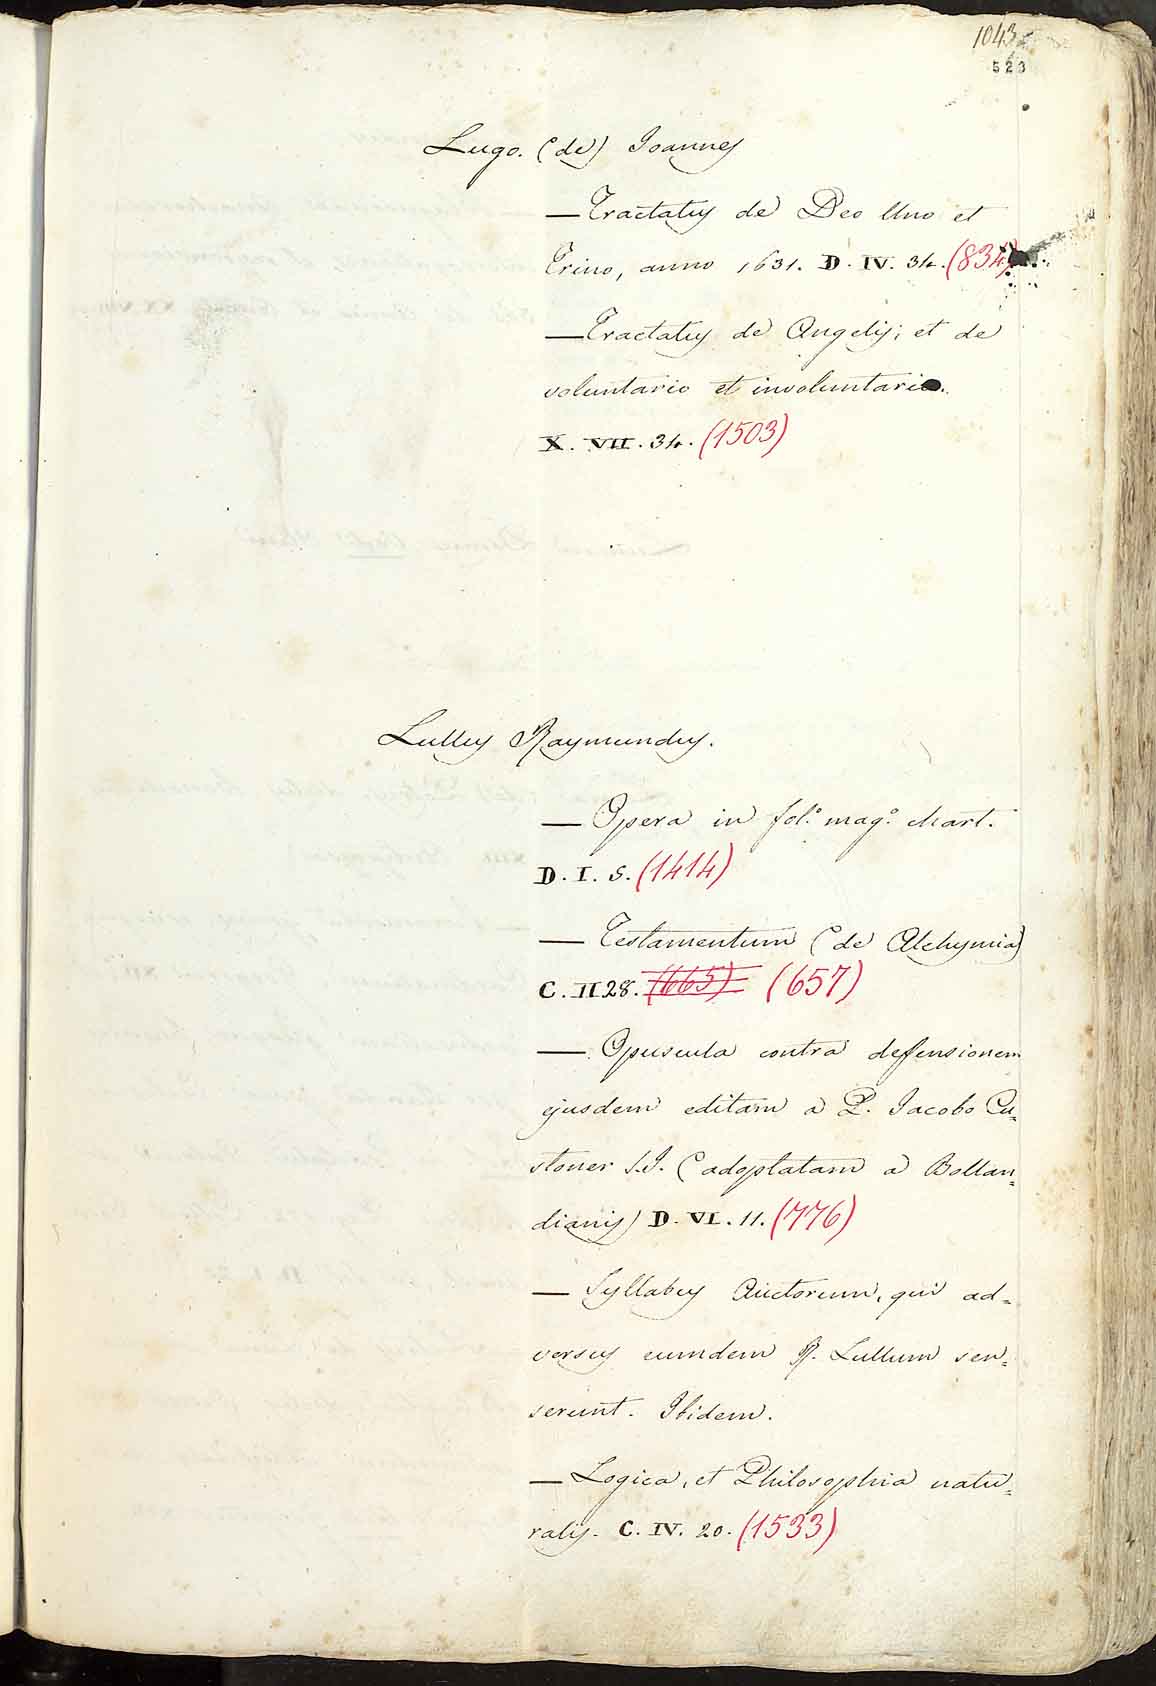 1043
523
Lugo. (de) Joannes
— Tractatus de Deo Uno et
Trino, anno 1631. D. IV. 34. (834)
— Tractatus de Angelis; et de
voluntario et involuntario.
X. VII. 34. (1503)
Lullus Raymundus.
— Opera in fol.º mag.º chart.
D. I. 5. (1414)
— Testamentum (de Alchymia)
C. II 28. (665) (657)
— Opuscula contra deffensionem
ejusdem editam a P. Jacobo Cu=
stoner S.J. (adoptatam a Bollan=
dianis) D. VI. 11. (776)
— Syllabus Auctorum, qui ad=
versus eumdem R. Lullum sen=
serunt. Ibidem.
— Logica, et Philosophia natu=
ralis. C. IV. 20. (1533)